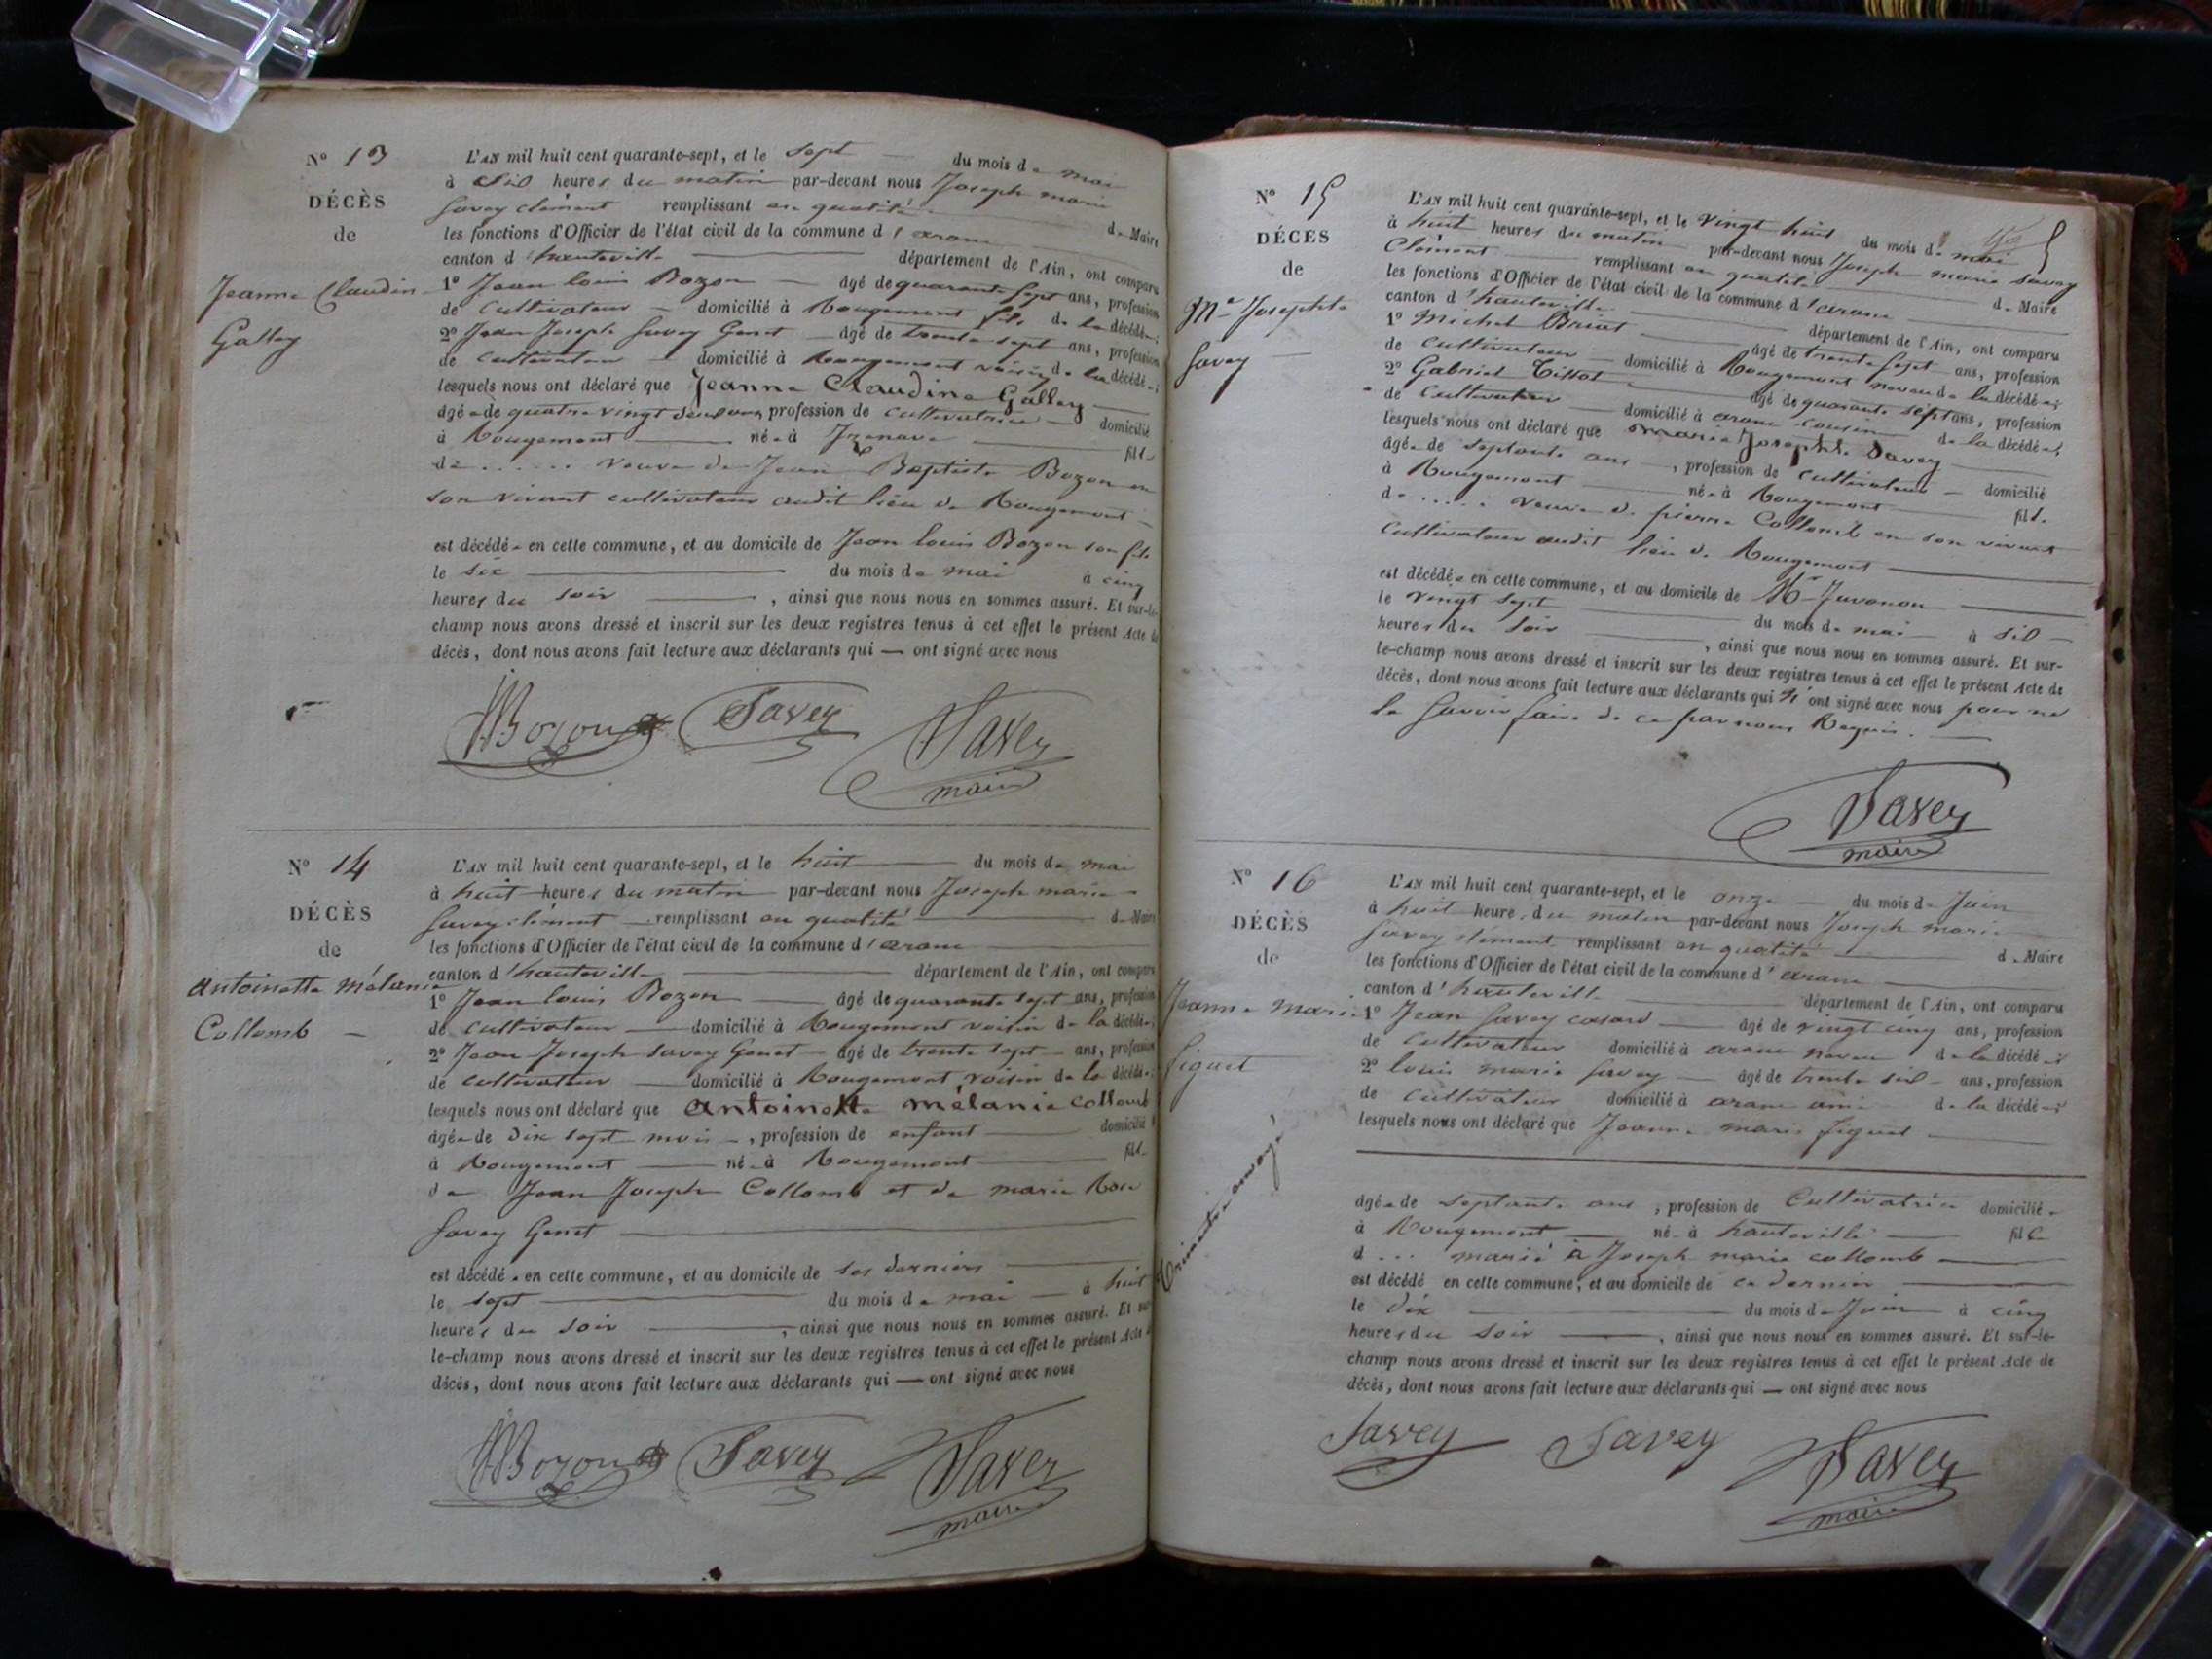 N° 13
DÉCÈS
de
Jeanne Claudine
Galley
L'AN mil huit cent quarante-sept, et le sept du mois de mai
à six heures du matin par-devant nous Joseph marie
Savey clément remplissant en qualité de Maire
les fonctions d'Officier de l'état civil de la commune d'arane
canton d'hauteville département de l'Ain, ont comparu
1° Jean louis Bozon âgé de quarante sept ans, profession
de Cultivateur domicilié à Rougemont fils de la décédée;
2° Jean Joseph Savey Genet âgé de trente sept ans, profession
de cultivateur domicilié à Rougemont voisin de la décédée;
lesquels nous ont déclaré que Jeanne Claudine Galley
âgée de quatre vingt deux ans, profession de cultivatrice domicilié
à Rougemont née à Izenave fille
de ...... veuve de Jean Baptiste Bozon en
son vivant cultivateur audit lieu de Rougemont
est décédée en cette commune, et au domicile de Jean louis Bozon son fils
le six du mois de mai à cinq
heures du soir, ainsi que nous nous en sommes assuré. Et sur-le-
champ nous avons dressé et inscrit sur les deux registres tenus à cet effet le présent Acte de
décès, dont nous avons fait lecture aux déclarants qui — ont signé avec nous
Bozon Savey Savey
maire
N° 14
DÉCÈS
de
antoinette mélanie
Collomb
L'AN mil huit cent quarante-sept, et le huit du mois de mai
à huit heures du matin par-devant nous Joseph marie
Savey clément remplissant en qualité de Maire
les fonctions d'Officier de l'état civil de la commune d'arane
canton d'hauteville département de l'Ain, ont comparu
1° Jean louis Bozon âgé de quarante sept ans, profession
de cultivateur domicilié à Rougemont voisin de la décédée;
2° Jean Joseph Savey Genet âgé de trente sept ans, profession
de cultivateur domicilié à Rougemont, voisin de la décédée;
lesquels nous ont déclaré que antoinette mélanie Collomb
âgée de dix sept mois, profession de enfant domicilié
à Rougemont née à Rougemont fille
de Jean Joseph Collomb et de marie Rose
Savey Genet
est décédée en cette commune, et au domicile de ses derniers
le sept du mois de mai à huit
heures du soir, ainsi que nous nous en sommes assuré. Et sur-
le-champ nous avons dressé et inscrit sur les deux registres tenus à cet effet le présent Acte de
décès, dont nous avons fait lecture aux déclarants qui — ont signé avec nous
Bozon Savey Savey
maire
N° 15
DÉCÈS
de
Mie Josephte
Savey
L'AN mil huit cent quarante-sept, et le vingt huit du mois de mai
à huit heures du matin par-devant nous Joseph marie Savey
Clément remplissant en qualité de Maire
les fonctions d'Officier de l'état civil de la commune d'arane
canton d'hauteville département de l'Ain, ont comparu
1° Michel âgé de trente sept ans, profession
de cultivateur domicilié à Rougemont neveu de la décédée;
2° Gabriel Tissot âgé de quarante sept ans, profession
de Cultivateur domicilié à arane cousin de la décédée;
lesquels nous ont déclaré que marie Josephte Savey
âgée de septante ans, profession de cultivateur domicilié
à Rougemont née à Rougemont fille
de ..... veuve de pierre Collomb en son vivant
Cultivateur audit lieu de Rougemont
est décédée en cette commune, et au domicile de Mr Juvanon
le vingt sept du mois de mai à six
heures du soir, ainsi que nous nous en sommes assuré. Et sur-
le-champ nous avons dressé et inscrit sur les deux registres tenus à cet effet le présent Acte de
décès, dont nous avons fait lecture aux déclarants qui n'ont signé avec nous pour ne
le Savoir faire de ce par nous Requis.
Savey
maire
N° 16
DÉCÈS
de
Jeanne marie
figuet
L'AN mil huit cent quarante-sept, et le onze du mois de Juin
à huit heures du matin par-devant nous Joseph marie
Savey clément remplissant en qualité de Maire
les fonctions d'Officier de l'état civil de la commune d'arane
canton d'hauteville département de l'Ain, ont comparu
1° Jean Savey casard âgé de vingt cinq ans, profession
de Cultivateur domicilié à arane neveu de la décédée;
2° louis marie Savey âgé de trente six ans, profession
de cultivateur domicilié à arane ami de la décédée;
lesquels nous ont déclaré que Jeanne marie figuet
âgée de septante ans, profession de Cultivatrice domiciliée
à Rougemont née à hauteville fille
d ... marié à Joseph marie collomb
est décédé en cette commune, et au domicile de ce dernier
le dix du mois de Juin à cinq
heures du soir, ainsi que nous nous en sommes assuré. Et sur-le-
champ nous avons dressé et inscrit sur les deux registres tenus à cet effet le présent Acte de
décès, dont nous avons fait lecture aux déclarants qui — ont signé avec nous
Savey Savey Savey
maire
Trimestre envoyé